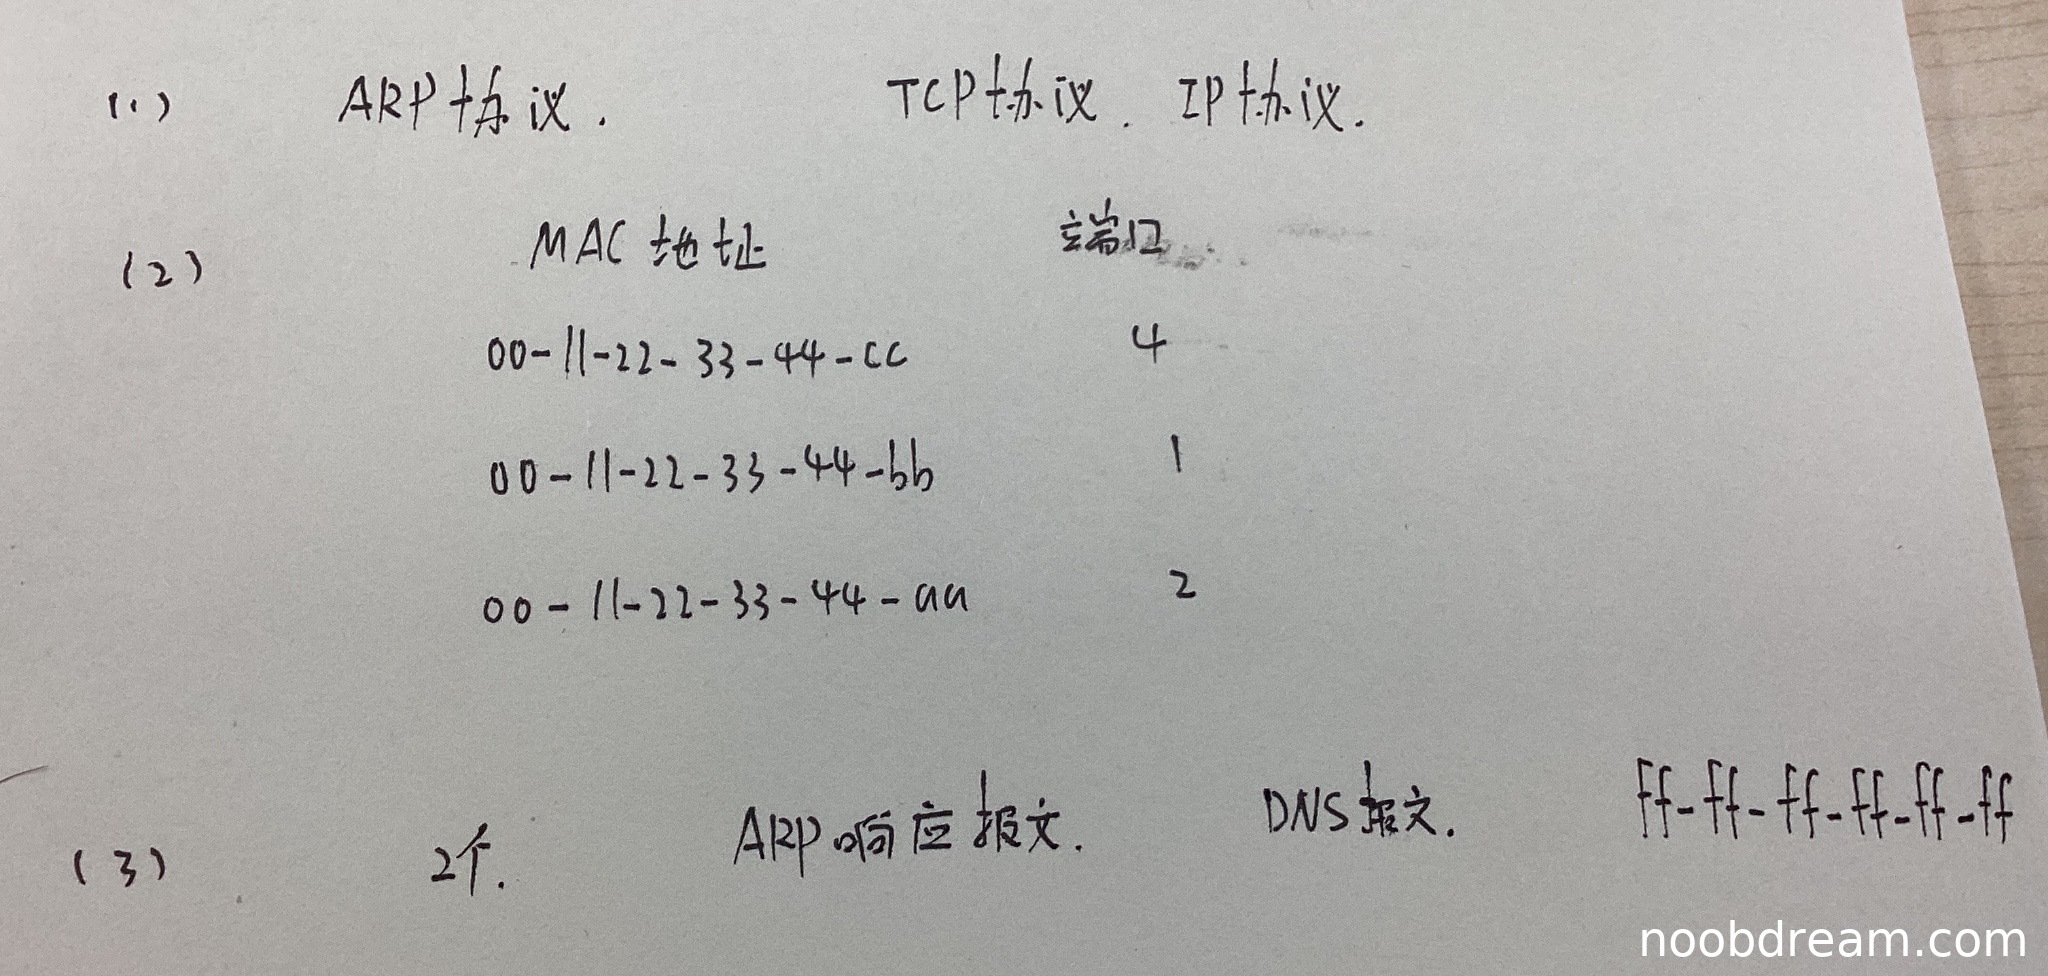 (1) ARP协议. TCP协议. IP协议.
(2) MAC地址 端口
00-11-22-33-44-cc 4
00-11-22-33-44-bb 1
00-11-22-33-44-aa 2
(3) 2个. ARP响应报文. DNS报文. ff-ff-ff-ff-ff-ff
noobdream.com